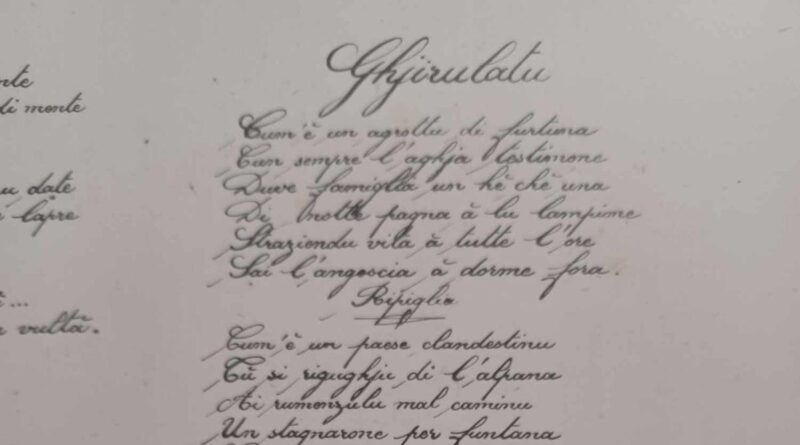 Ghjirulatu
nte
di monte
Cum'è un agrottu di furtuna
Cun sempre l'aghja testimone
u date
Duve famiglia un hè chè una
lapre
Di notte pagna à lu lampione
Straziendu vita à tutte l'ore
Sai l'angoscia à dorme fora.
Ripiglia
vultà.
Cum'è un paese clandestinu
Tù si rigughju di l'alpana
Ai rumenzulu mal caminu
Un stagnarone per funtana